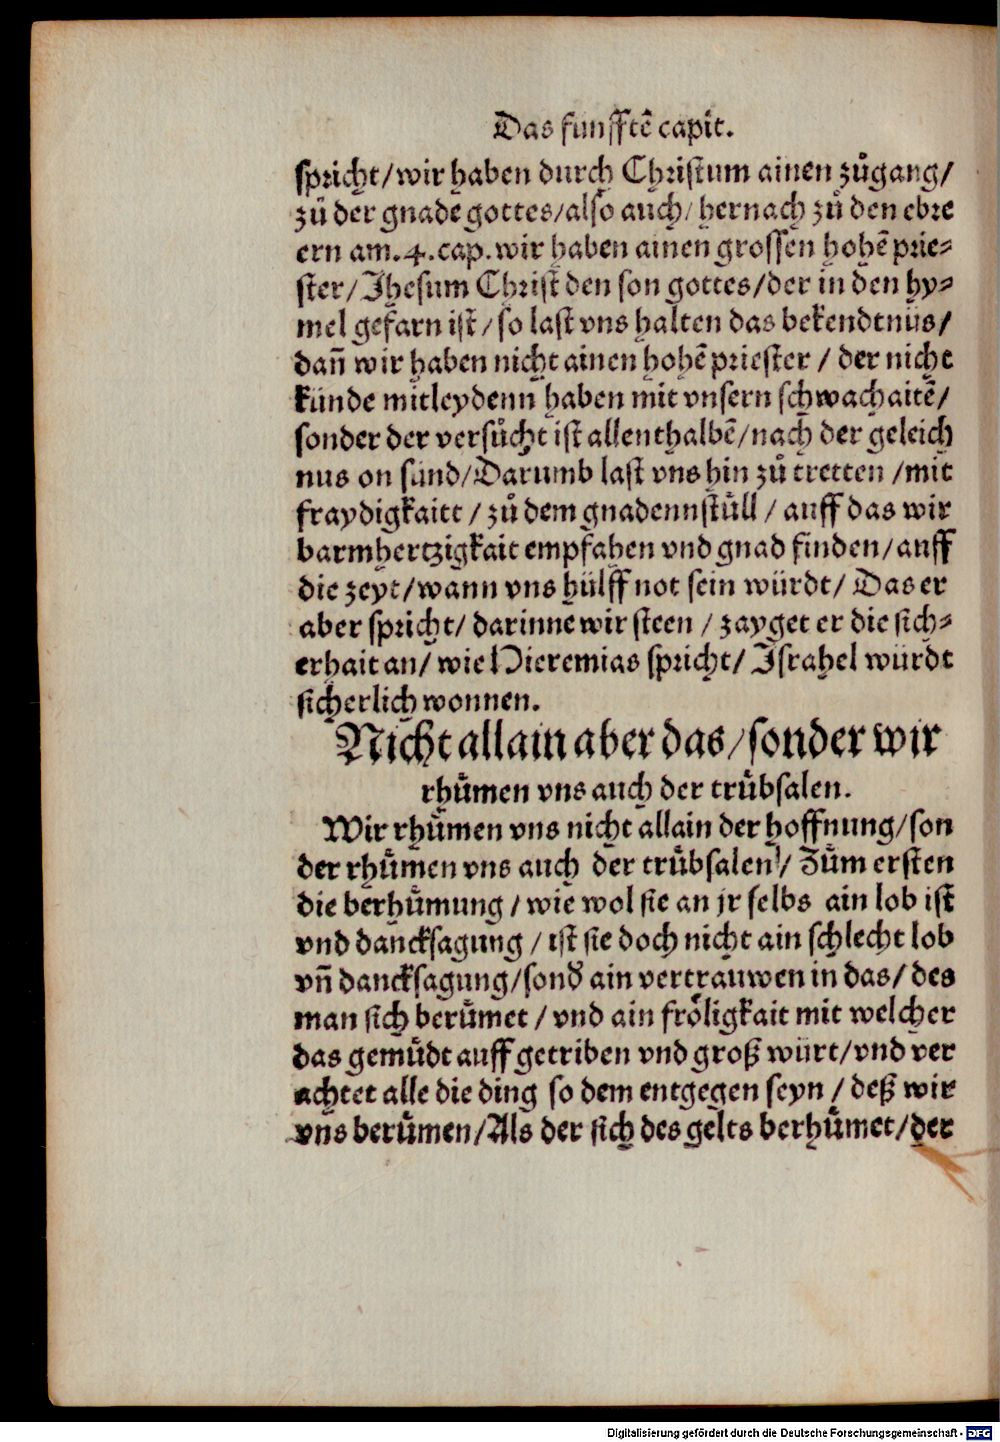 Das funfftē capit.
spricht/wir haben durch Christum ainen zůgang/
zů der gnade gottes/also auch/hernach zů den ebre
ern am.4.cap.wir haben ainen grossen hohē prie-
ster/Jhesum Christ den son gottes/der in den hy-
mel gefarn ist/so last vns halten das bekendtnüs/
dañ wir haben nicht ainen hohē priester/der nicht
künde mitleydenn haben mit vnsern schwachaitē/
sonder der versůcht ist allenthalbē/nach der geleich
nus on sünd/Darumb last vns hin zů tretten/mit
fraydigkaitt/zů dem gnadennstůll/auff das wir
barmhertzigkait empfahen vnd gnad finden/auff
die zeyt/wann vns hülff not sein würdt/Das er
aber spricht/darinne wir steen/zayget er die sich-
erhait an/wie Hieremias spricht/Israhel würdt
sicherlich wonnen.
Nicht allain aber das/sonder wir
rhůmen vns auch der trůbsalen.
Wir rhůmen vns nicht allain der hoffnung/son
der rhůmen vns auch der trůbsalen/Zům ersten
die berhůmung/wie wol sie an jr selbs ain lob ist
vnd dancksagung/ist sie doch nicht ain schlecht lob
vñ dancksagung/sond̛ ain vertrauwen in das/des
man sich berůmet/vnd ain frôligkait mit welcher
das gemůdt auff getriben vnd groß würt/vnd ver
achtet alle die ding so dem entgegen seyn/deß wir
vns berůmen/Als der sich des gelts berhůmet/der
Digitalisierung gefördert durch die Deutsche Forschungsgemeinschaft - DFG